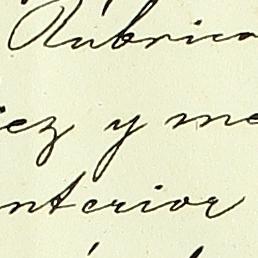 Rubrica
iez y me
nterior